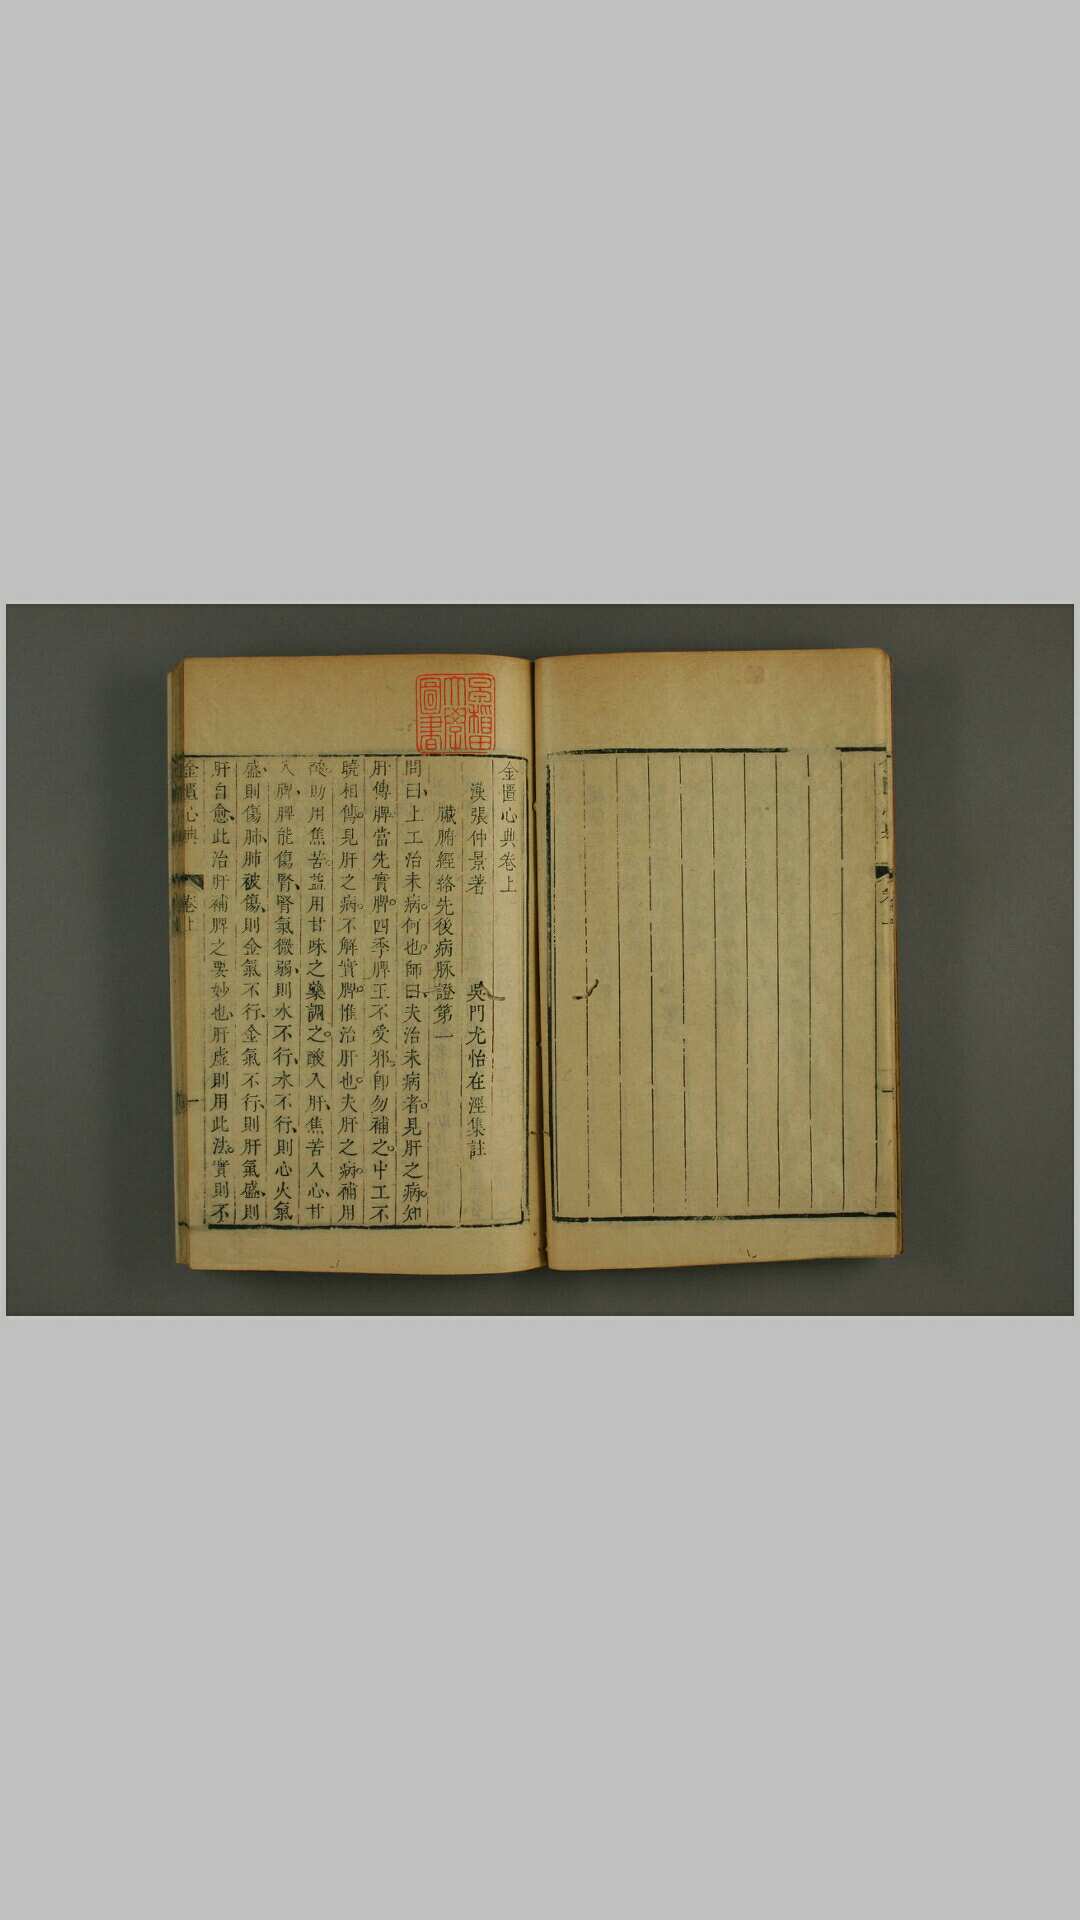 金匱心典卷上
漢張仲景著 吳門尤怡在涇集註
臟腑經絡先後病脉證第一
問曰、上工治未病。何也。師曰、夫治未病者。見肝之病。知
肝傳脾。當先實脾。四季脾王不受邪。卽勿補之。中工不
曉相傳。見肝之病。不解實脾。惟治肝也。夫肝之病。補用
酸。助用焦苦。益用甘味之藥調之。酸入肝、焦苦入心、甘
入脾、脾能傷腎、腎氣微弱、則水不行、水不行、則心火氣
盛、則傷肺、肺被傷、則金氣不行、金氣不行、則肝氣盛、則
肝自愈、此治肝補脾之要妙也、肝虛則用此法。實則不
金匱心典 卷上 一
早稻田大學圖書